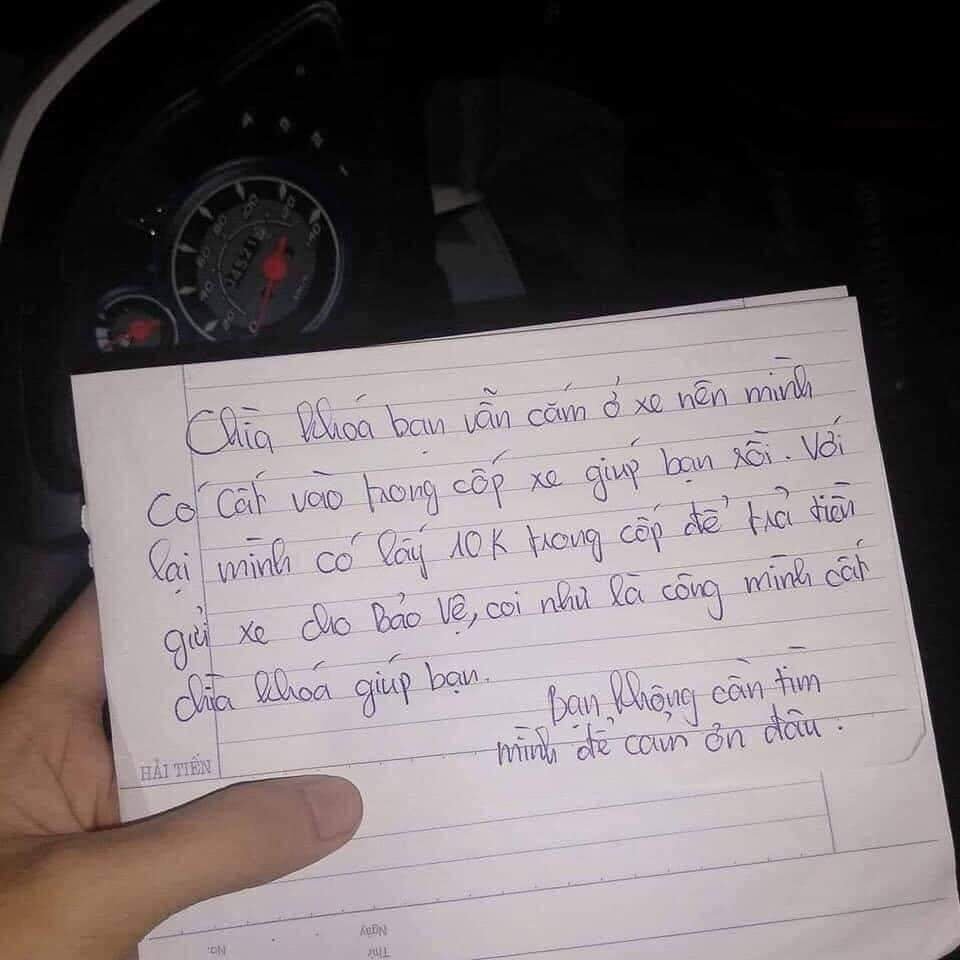 Chìa khoá bạn vẫn cắm ở xe nên mình
có cất vào trong cốp xe giúp bạn rồi. Với
lại mình có lấy 10K trong cốp để trả tiền
gửi xe cho Bảo Vệ, coi như là công mình cất
chìa khoá giúp bạn.
Bạn không cần tìm
mình để cảm ơn đâu.
HẢI TIẾN
Ngày
Thứ
No.